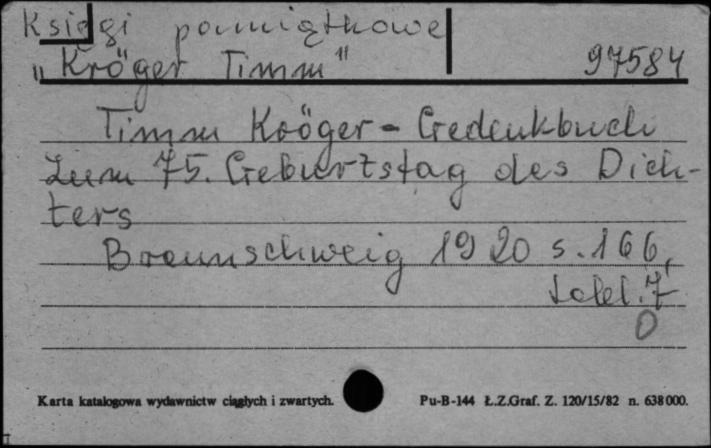 Księgi pamiątkowe
"Kröger Timm" 97584
Timm Kröger - Gedenkbuch
zum 75. Geburtstag des Dich-
ters
Braunschweig 1920 s. 166,
tabl. 7
Karta katalogowa wydawnictw ciągłych i zwartych. Pu-B-144 Ł.Z.Graf. Z. 120/15/82 n. 638000.